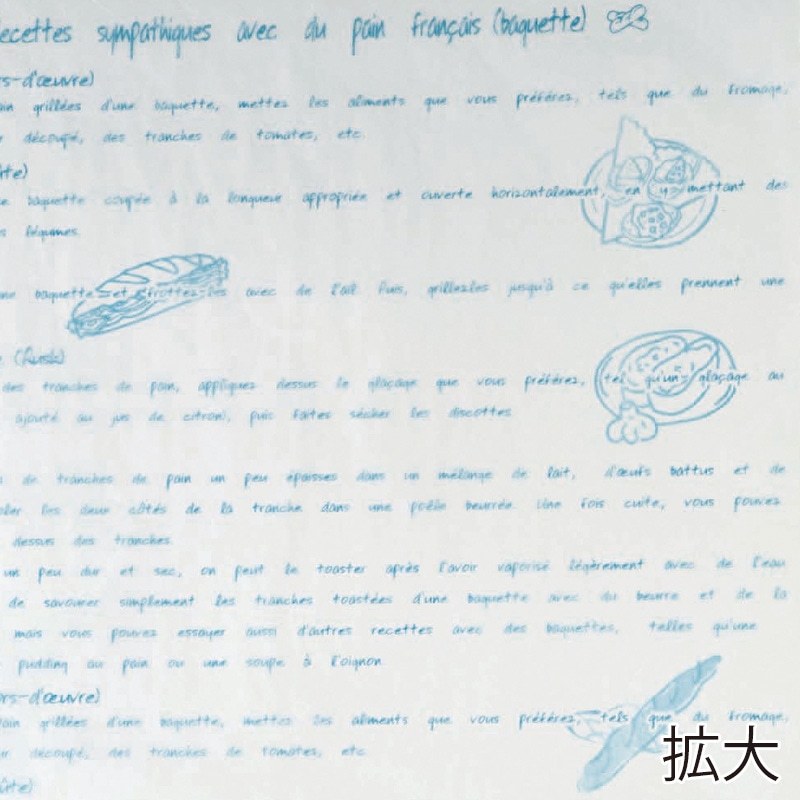 ecettes sympathiques avec du pain français (baguette)
rs-d'œuvre)
ain grillées d'une baguette, mettez les aliments que vous préférez, tels que du fromage,
r découpé, des tranches de tomates, etc.
ûte)
e baguette coupée à la longueur appropriée et ouverte horizontalement, en y mettant des
s légumes.
ne baguette et frottez-les avec de l'ail. Puis, grillez-les jusqu'à ce qu'elles prennent une
(Rusk)
des tranches de pain, appliquez dessus le glaçage que vous préférez, tel qu'un glaçage au
ajouté au jus de citron), puis faites sécher les biscottes.
de tranches de pain un peu épaisses dans un mélange de lait, d'œufs battus et de
les deux côtés de la tranche dans une poêle beurrée. Une fois cuite, vous pouvez
dessus des tranches.
un peu dur et sec, on peut le toaster après l'avoir vaporisé légèrement avec de l'eau
de savourer simplement les tranches toastées d'une baguette avec du beurre et de la
mais vous pouvez essayer aussi d'autres recettes avec des baguettes, telles qu'une
pudding au pain ou une soupe à l'oignon.
ors-d'œuvre)
ain grillées d'une baguette, mettez les aliments que vous préférez, tels que du fromage,
r découpé, des tranches de tomates, etc.
ûte)
拡大